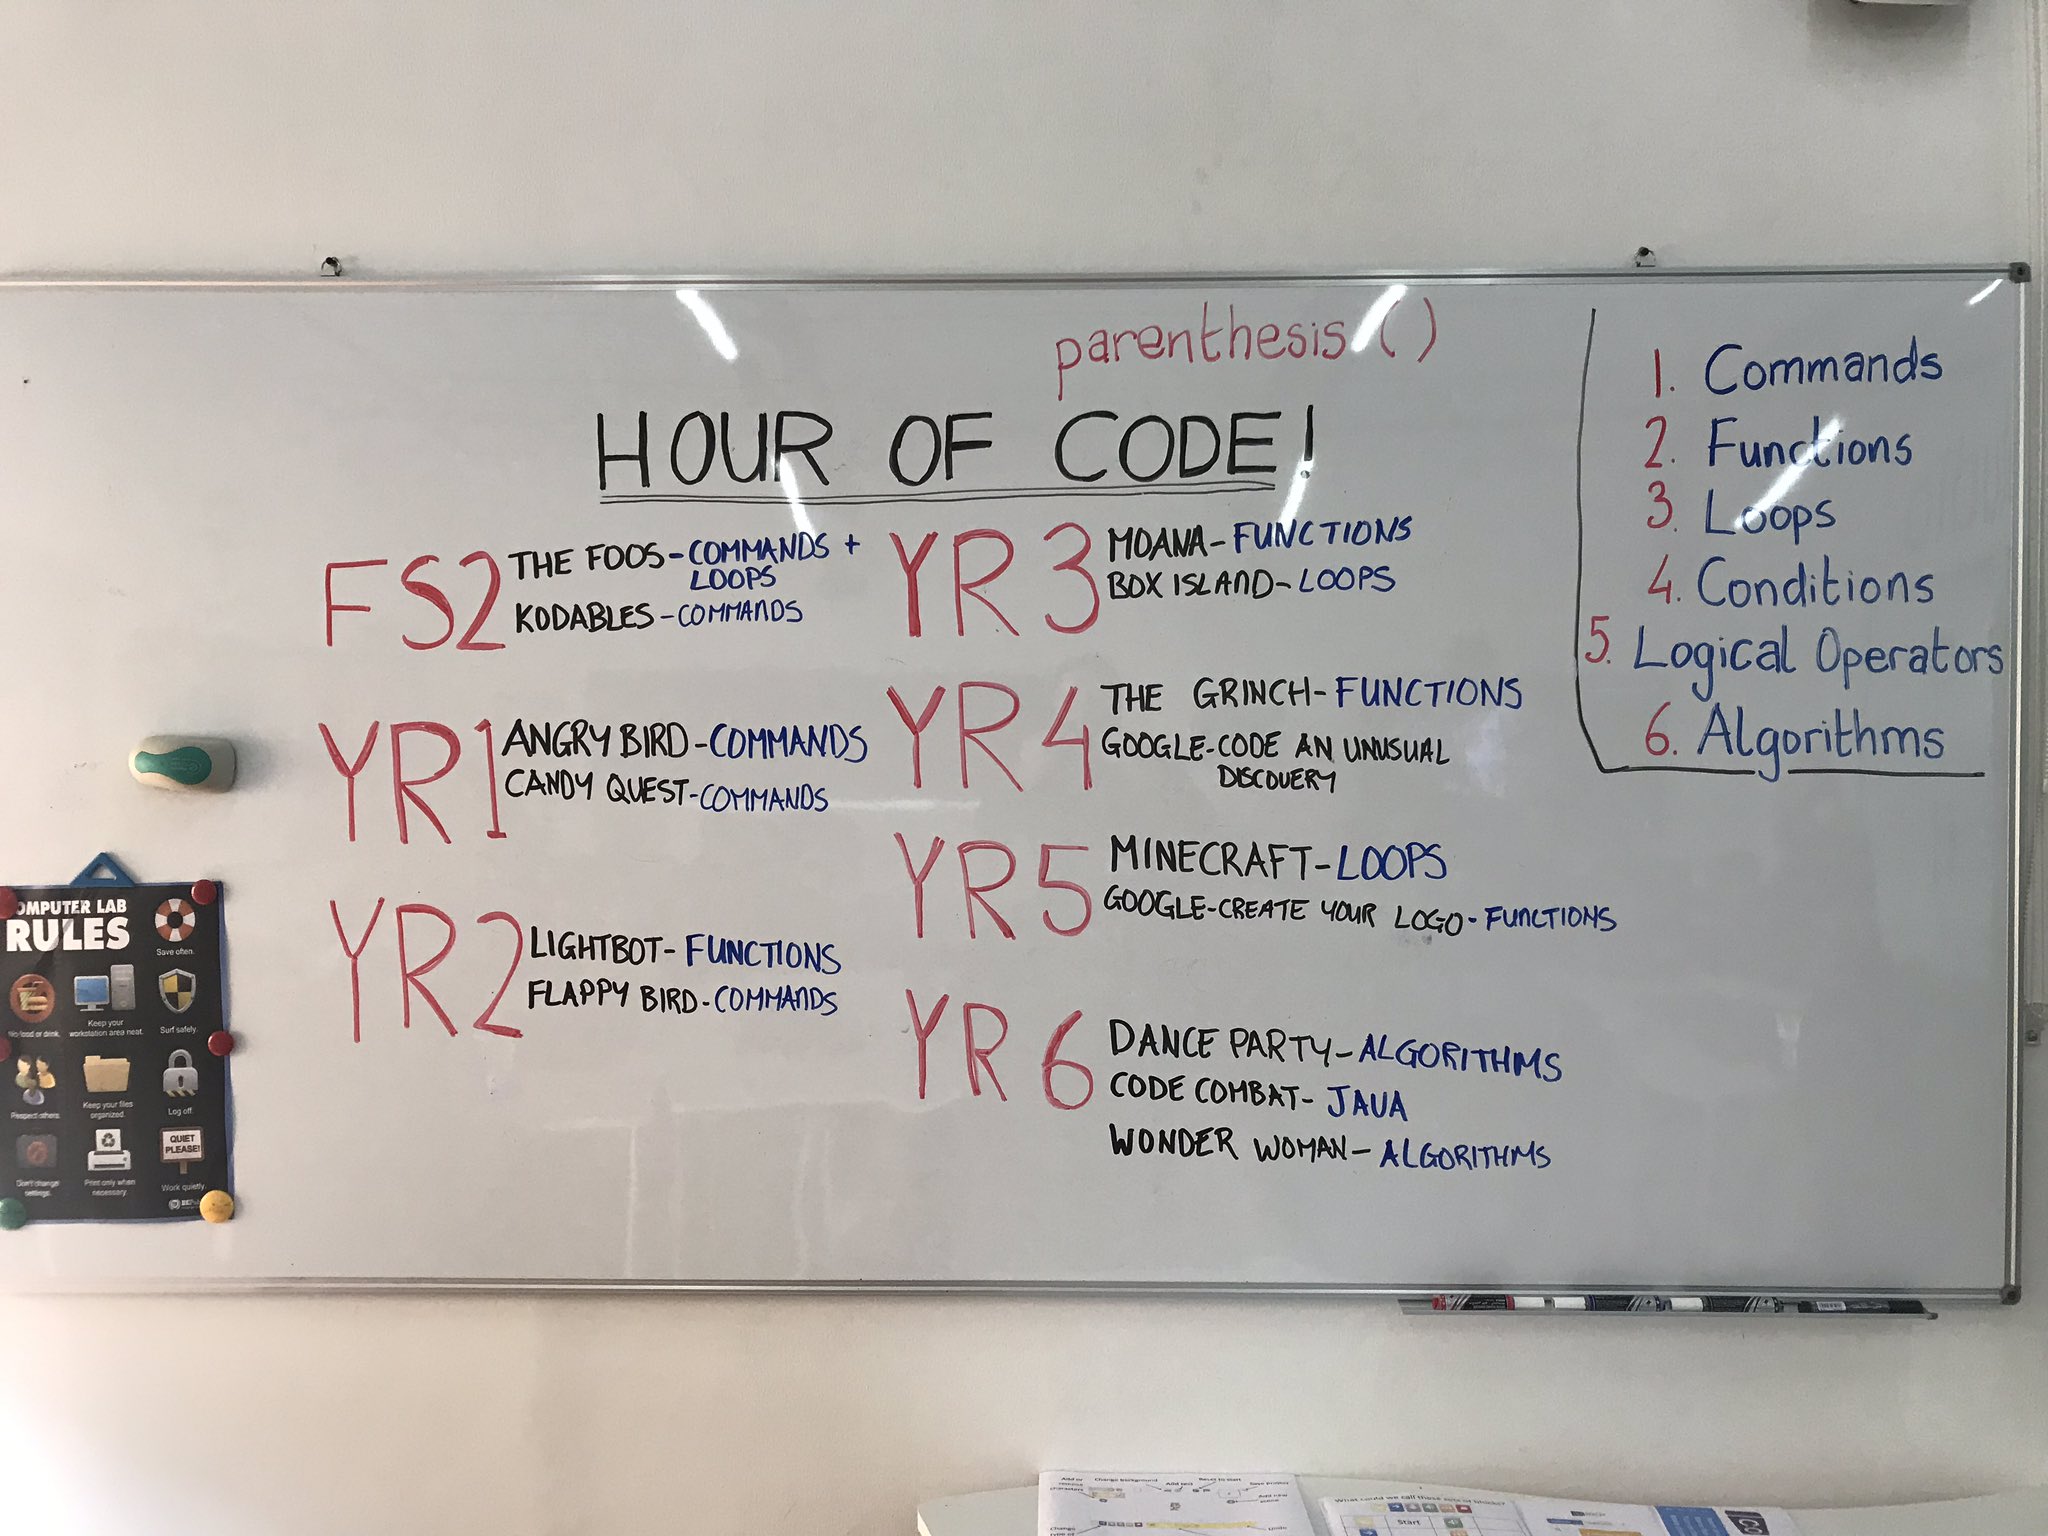 parenthesis ( )
HOUR OF CODE!
FS2
THE FOOS - COMMANDS +
LOOPS
KODABLES - COMMANDS
YR1
ANGRY BIRD - COMMANDS
CANDY QUEST - COMMANDS
YR2
LIGHTBOT - FUNCTIONS
FLAPPY BIRD - COMMANDS
YR 3
MOANA - FUNCTIONS
BOX ISLAND - LOOPS
YR 4
THE GRINCH - FUNCTIONS
GOOGLE - CODE AN UNUSUAL
DISCOVERY
YR 5
MINECRAFT - LOOPS
GOOGLE - CREATE YOUR LOGO - FUNCTIONS
YR 6
DANCE PARTY - ALGORITHMS
CODE COMBAT - JAVA
WONDER WOMAN - ALGORITHMS
1. Commands
2. Functions
3. Loops
4. Conditions
5. Logical Operators
6. Algorithms
OMPUTER LAB
RULES
Save often.
No food or drink.
Keep your
workstation area neat.
Surf safely.
Respect others.
Keep your files
organized.
Log off.
QUIET
PLEASE!
Don't change
settings.
Print only when
necessary.
Work quietly.
Change background
Add text
Reset to start
What could we call these sets of blocks?
Start
Undo